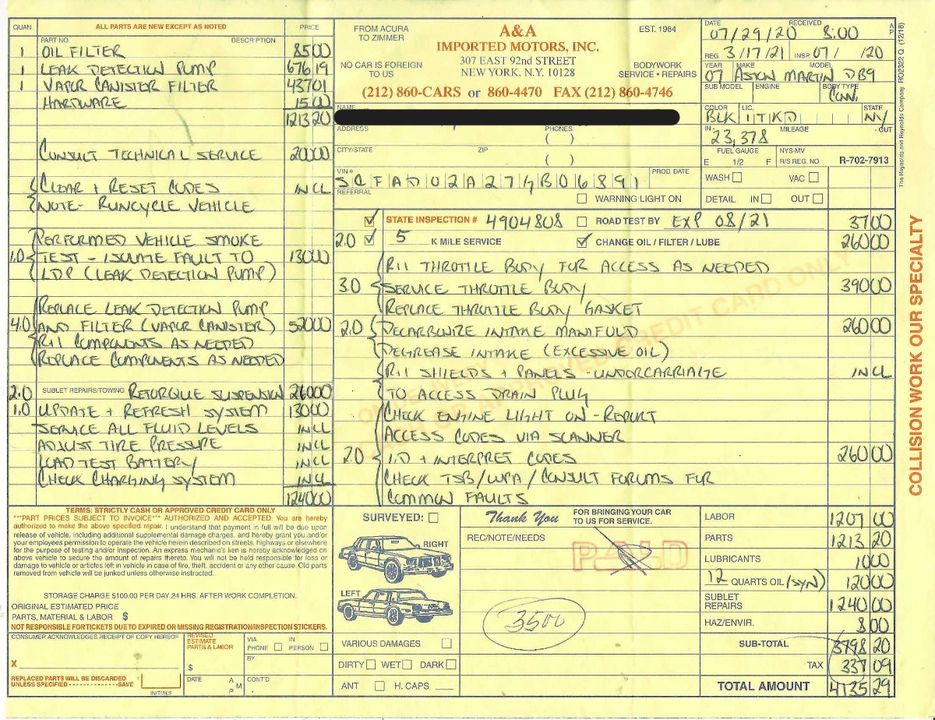 QUAN. ALL PARTS ARE NEW EXCEPT AS NOTED PRICE
PART NO. DESCRIPTION
1 OIL FILTER 85 00
1 LEAK DETECTION PUMP 676 19
1 VAPOR CANISTER FILTER 437 01
HARDWARE 15 00
1213 20
CONSULT TECHNICAL SERVICE 200 00
CLEAR + RESET CODES INCL
NOTE- RUNCYCLE VEHICLE
PERFORMED VEHICLE SMOKE
1.0 TEST - ISOLATE FAULT TO 130 00
LDP (LEAK DETECTION PUMP)
REPLACE LEAK DETECTION PUMP
4.0 AND FILTER (VAPOR CANISTER) 520 00
R+I COMPONENTS AS NEEDED
REPLACE COMPONENTS AS NEEDED
2.0 SUBLET REPAIRS/TOWING RETORQUE SUSPENSION 260 00
1.0 UPDATE + REFRESH SYSTEM 130 00
SERVICE ALL FLUID LEVELS INCL
ADJUST TIRE PRESSURE INCL
LOAD TEST BATTERY/ INCL
CHECK CHARGING SYSTEM INCL
1240 00
TERMS: STRICTLY CASH OR APPROVED CREDIT CARD ONLY
***PART PRICES SUBJECT TO INVOICE*** AUTHORIZED AND ACCEPTED: You are hereby
authorized to make the above specified repair. I understand that payment in full will be due upon
release of vehicle, including additional supplemental damage charges, and hereby grant you and/or
your employees permission to operate the vehicle herein described on streets, highways or elsewhere
for the purpose of testing and/or inspection. An express mechanic's lien is hereby acknowledged on
above vehicle to secure the amount of repairs thereto. You will not be held responsible for loss or
damage to vehicle or articles left in vehicle in case of fire, theft, accident or any other cause. Old parts
removed from vehicle will be junked unless otherwise instructed.
STORAGE CHARGE $100.00 PER DAY 24 HRS. AFTER WORK COMPLETION.
ORIGINAL ESTIMATED PRICE
PARTS, MATERIAL & LABOR $
NOT RESPONSIBLE FOR TICKETS DUE TO EXPIRED OR MISSING REGISTRATION/INSPECTION STICKERS.
CONSUMER ACKNOWLEDGES RECEIPT OF COPY HEREOF
X
REPLACED PARTS WILL BE DISCARDED
UNLESS SPECIFIED SAVE
INITIALS
REVISED
ESTIMATE
PARTS & LABOR
$
DATE A M
P
VIA PHONE IN PERSON
BY
CONT'D
FROM ACURA
TO ZIMMER
NO CAR IS FOREIGN
TO US
A&A
IMPORTED MOTORS, INC.
307 EAST 92nd STREET
NEW YORK, N.Y. 10128
EST. 1984
BODYWORK
SERVICE • REPAIRS
(212) 860-CARS or 860-4470 FAX (212) 860-4746
NAME
ADDRESS PHONES
( )
CITY/STATE ZIP
( )
VIN # PROD DATE
SCFAD02A27GB06891
REFERRAL
WARNING LIGHT ON
DATE RECEIVED A P
07/29/20 8:00
REG. 3/17/21 INSP. 07/ /20
YEAR MAKE MODEL
07 ASTON MARTIN DB9
SUB MODEL ENGINE BODY TYPE
CONV.
COLOR LIC. STATE
BLK 1TKD NY
IN MILEAGE OUT
23,378
FUEL GAUGE NYS-MV
E 1/2 F R/S REG. NO. R-702-7913
WASH VAC
DETAIL IN OUT
STATE INSPECTION # 4904808 ROAD TEST BY EXP 08/21 37 00
2.0 5 K MILE SERVICE CHANGE OIL / FILTER / LUBE 260 00
R+I THROTTLE BODY FOR ACCESS AS NEEDED
3.0 SERVICE THROTTLE BODY 390 00
REPLACE THROTTLE BODY GASKET
2.0 DECARBONIZE INTAKE MANIFOLD 260 00
DEGREASE INTAKE (EXCESSIVE OIL)
R+I SHIELDS + PANELS - UNDERCARRIAGE INCL
TO ACCESS DRAIN PLUG
CHECK ENGINE LIGHT ON - REPORT
ACCESS CODES VIA SCANNER
2.0 I.D + INTERPRET CODES 260 00
CHECK TSB/WPA/CONSULT FORUMS FOR
COMMON FAULTS
SURVEYED:
RIGHT
LEFT
VARIOUS DAMAGES
DIRTY WET DARK
ANT H. CAPS
Thank You FOR BRINGING YOUR CAR
TO US FOR SERVICE.
REC/NOTE/NEEDS
PAID
3500
LABOR 1207 00
PARTS 1213 20
LUBRICANTS 10 00
12 QUARTS OIL (SYN) 120 00
SUBLET
REPAIRS 1240 00
HAZ/ENVIR. 8 00
SUB-TOTAL 3798 20
TAX 337 09
TOTAL AMOUNT 4135 29
COLLISION WORK OUR SPECIALTY
The Reynolds and Reynolds Company RO2322 Q (12/16)